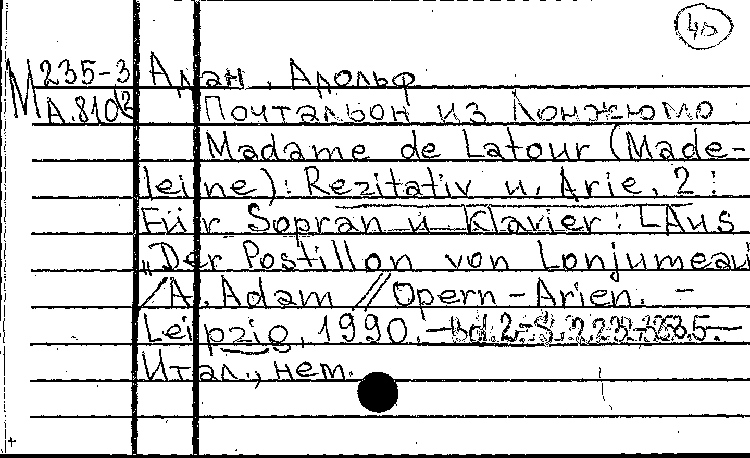 40
М 235-3 Адан, Адольф
А.810
Почтальон из Лонжюмо
Madame de Latour (Made-
leine): Rezitativ u. Arie, 2:
Für Sopran u Klavier: [Aus
„Der Postillon von Lonjumeau
/A. Adam // Opern-Arien. -
Leipzig, 1990. - Bd.2.-S.
Итал., нем.